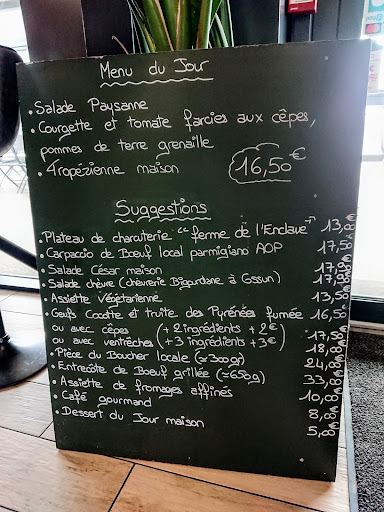 Menu du Jour
• Salade Paysanne
• Courgette et tomate farcies aux cêpes,
pommes de terre grenaille
• Tropézienne maison 16,50€
Suggestions
• Plateau de charcuterie "ferme de l'Enclave" 13,00€
• Carpaccio de Bœuf local parmigiano AOP 17,50€
• Salade César maison 17,50
• Salade chèvre (chèvrerie Bigourdane à Ossun)
• Assiette Végétarienne 13,50€
• Oeufs Cocotte et truite des Pyrénées fumée 16,50
ou avec cêpes (+ 2 ingrédients + 2€)
ou avec ventrêches (+ 3 ingrédients + 3€) 17,50€
• Pièce du Boucher locale (≈300gr) 18,00€
• Entrecôte de Bœuf grillée (≈650g) 24,00€
• Assiette de fromages affinés 33,00€
• Café gourmand 10,00€
• Dessert du Jour maison 8,00€
5,00€